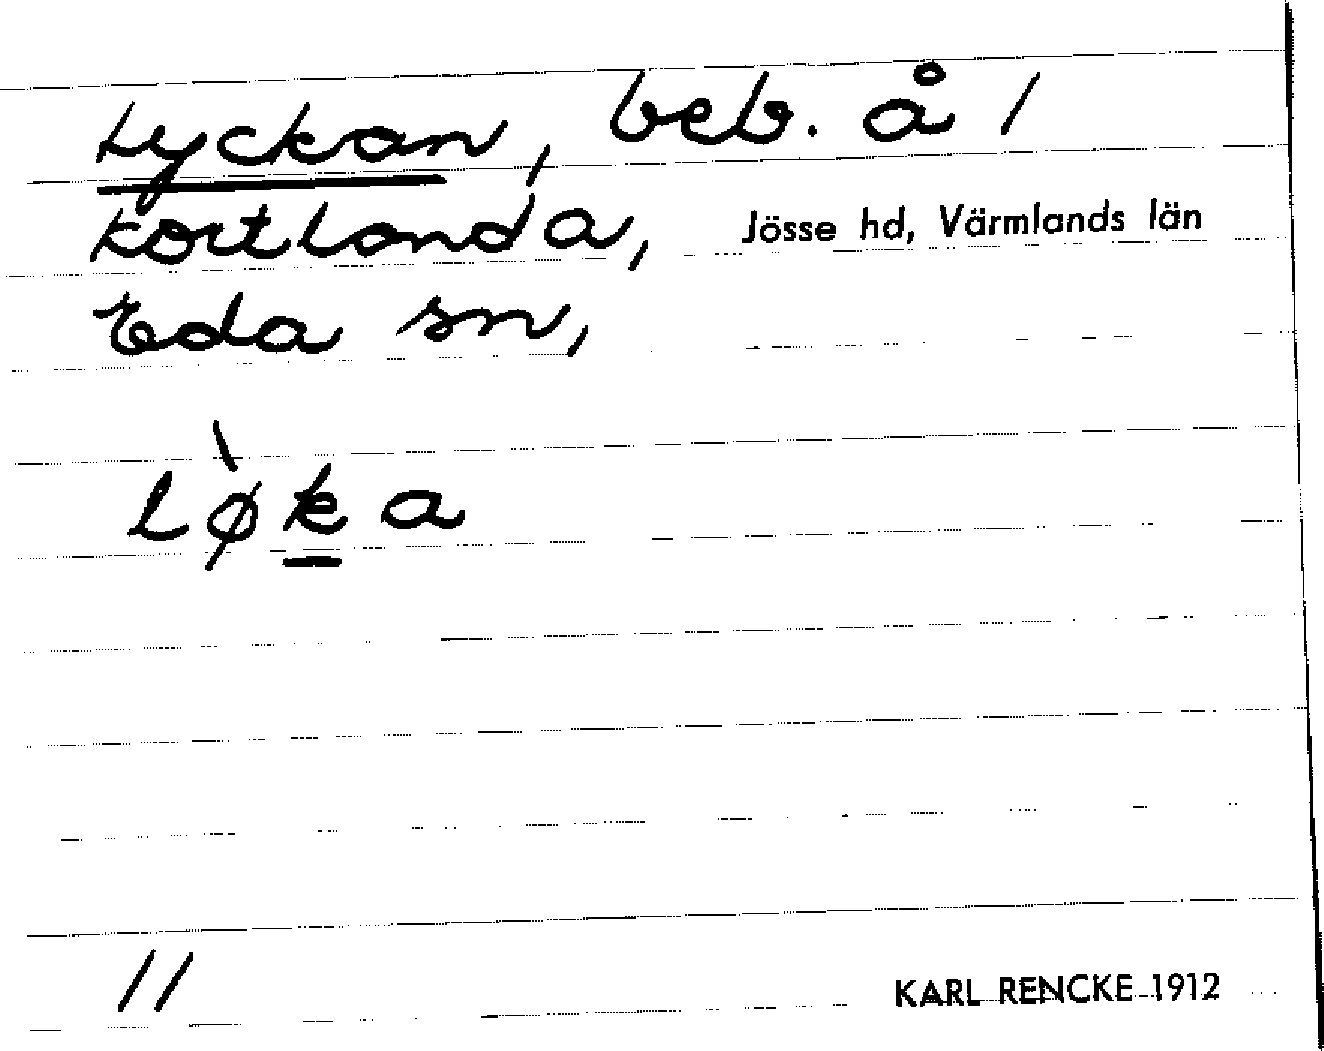 Lyckan, beb. å 1
Kortlanda, Jösse hd, Värmlands län
Eda sn,
lø̀ka
11
KARL RENCKE 1912